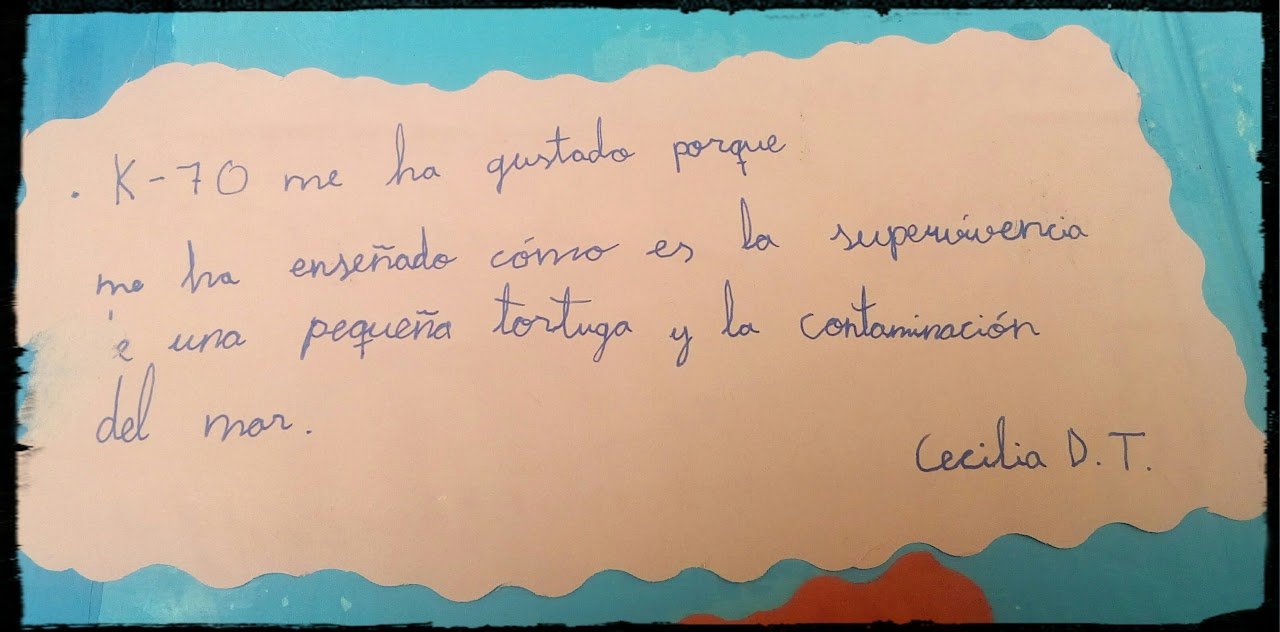 . K-70 me ha gustado porque
me ha enseñado cómo es la supervivencia
e una pequeña tortuga y la contaminación
del mar.
Cecilia D. T.